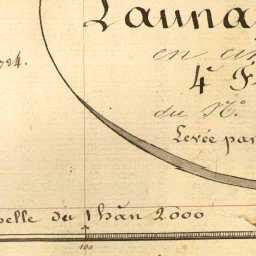 Launa
en
4e F
du No
Levée par
pelle du 1 han 2000
100